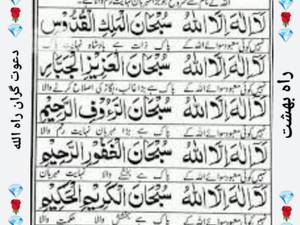 لَا اِلٰهَ اِلَّا اللهُ سُبْحَانَ الْمَلِكِ الْقُدُّوْسِ
نہیں کوئی معبود سوائے اللہ کے پاک ذات ہے بادشاہ نہایت پاک
لَا اِلٰهَ اِلَّا اللهُ سُبْحَانَ الْعَزِيْزِ الْجَبَّارِ
نہیں کوئی معبود سوائے اللہ کے پاک ہے بڑا غالب
لَا اِلٰهَ اِلَّا اللهُ سُبْحَانَ الرَّءُوْفِ الرَّحِيْمِ
نہیں کوئی معبود سوائے اللہ کے پاک ہے بڑا مہربان نہایت رحم والا
لَا اِلٰهَ اِلَّا اللهُ سُبْحَانَ الْغَفُوْرِ الرَّحِيْمِ
نہیں کوئی معبود سوائے اللہ کے پاک ہے بخشنے والا نہایت مہربان
لَا اِلٰهَ اِلَّا اللهُ سُبْحَانَ الْكَرِيْمِ الْحَكِيْمِ
نہیں کوئی معبود سوائے اللہ کے پاک ہے حکمت والا
راه بهشت
دعوت گران راه الله